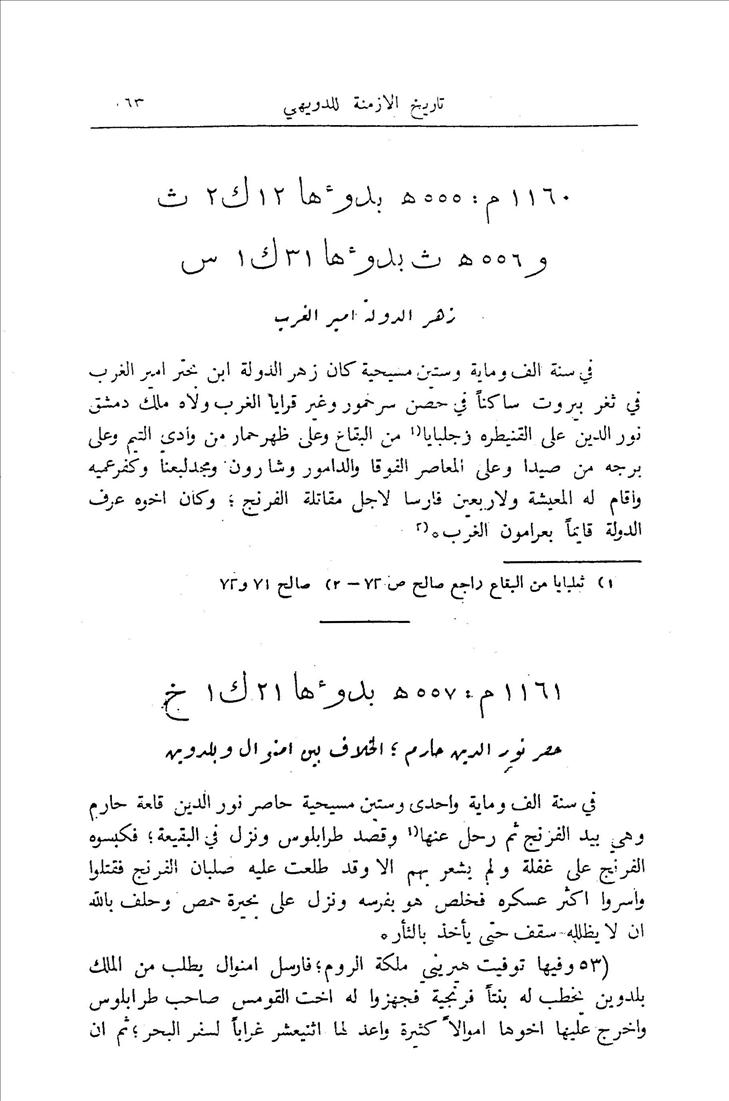 تاريخ الازمنة للدويهي ٠٦٣
١١٦٠ م : ٥٥٥ ه بدوءها ١٢ ك ٢ ث
و ٥٥٦ ه ث بدوءها ٣١ ك ١ س
زهر الدولة امير الغرب
في سنة الف وماية وستين مسيحية كان زهر الدولة ابن بحتر امير الغرب
في ثغر بيروت ساكناً في حصن سرحمور وغير قرايا الغرب ولاه ملك دمشق
نور الدين على القنيطره زجلبايا(١ من البقاع وعلى ظهر حمار من وادي التيم وعلى
برجه من صيدا وعلى المعاصر الفوقا والدامور وشارون ومجدليعنا وكفرعميه
واقام له المعيشة ولاربعين فارسا لاجل مقاتلة الفرنج ؛ وكان اخوه عرف
الدولة قايماً بعرامون الغرب ٠(٢
١) ثعلبايا من البقاع راجع صالح ص ٧٣ – ٢) صالح ٧١ و٧٢
١١٦١ م : ٥٥٧ ه بدوءها ٢١ ك ١ خ
حصر نور الدين حارم ؛ الخلاف بين امنوال وبلدوين
في سنة الف وماية واحدى وستين مسيحية حاصر نور الدين قلعة حارم
وهي بيد الفرنج ثم رحل عنها(١ وقصد طرابلوس ونزل في البقيعة ؛ فكبسوه
الفرنج على غفلة ولم يشعر بهم الا وقد طلعت عليه صلبان الفرنج فقتلوا
واسروا اكثر عسكره فخلص هو بفرسه ونزل على بحيرة حمص وحلف بالله
ان لا يظلله سقف حتى يأخذ بالثأر ٠
(٥٣ وفيها توفيت هيريني ملكة الروم ؛ فارسل امنوال يطلب من الملك
بلدوين يخطب له بنتاً فرنجية فجهزوا له اخت القومس صاحب طرابلوس
واخرج عليها اخوها اموالاً كثيرة واعد لها اثنيعشر غراباً لسفر البحر ؛ ثم ان